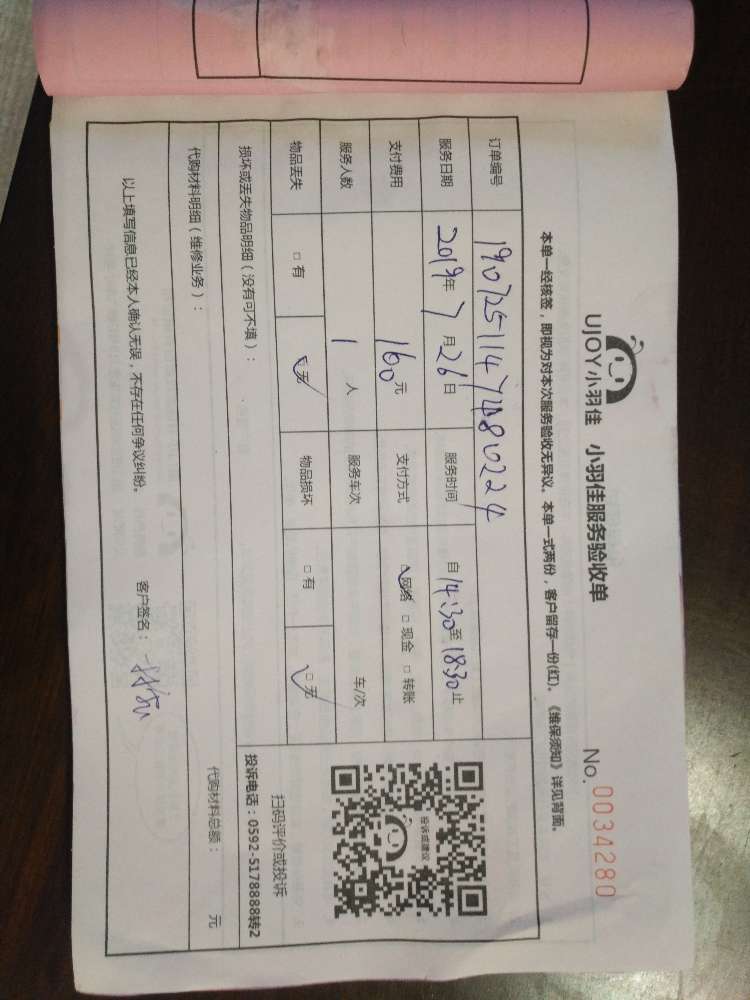 UJOY小羽佳 小羽佳服务验收单 No. 0034280
本单一经核签，即视为对本次服务验收无异议。本单一式两份，客户留存一份(红)。《维保须知》详见背面。
订单编号 19072511474880224
服务日期 2019年7月26日 服务时间 自14:30至18:30止
支付费用 160元 支付方式 ☑网络 □现金 □转账
服务人数 1人 服务车次 车/次
物品丢失 □有 ☑无 物品损坏 □有 ☑无
投诉或建议
扫码评价或投诉
投诉电话：0592-5178888转2
损坏或丢失物品明细（没有可不填）：
代购材料明细（维修业务）： 代购材料总额： 元
以上填写信息已经本人确认无误，不存在任何争议纠纷。 客户签名：